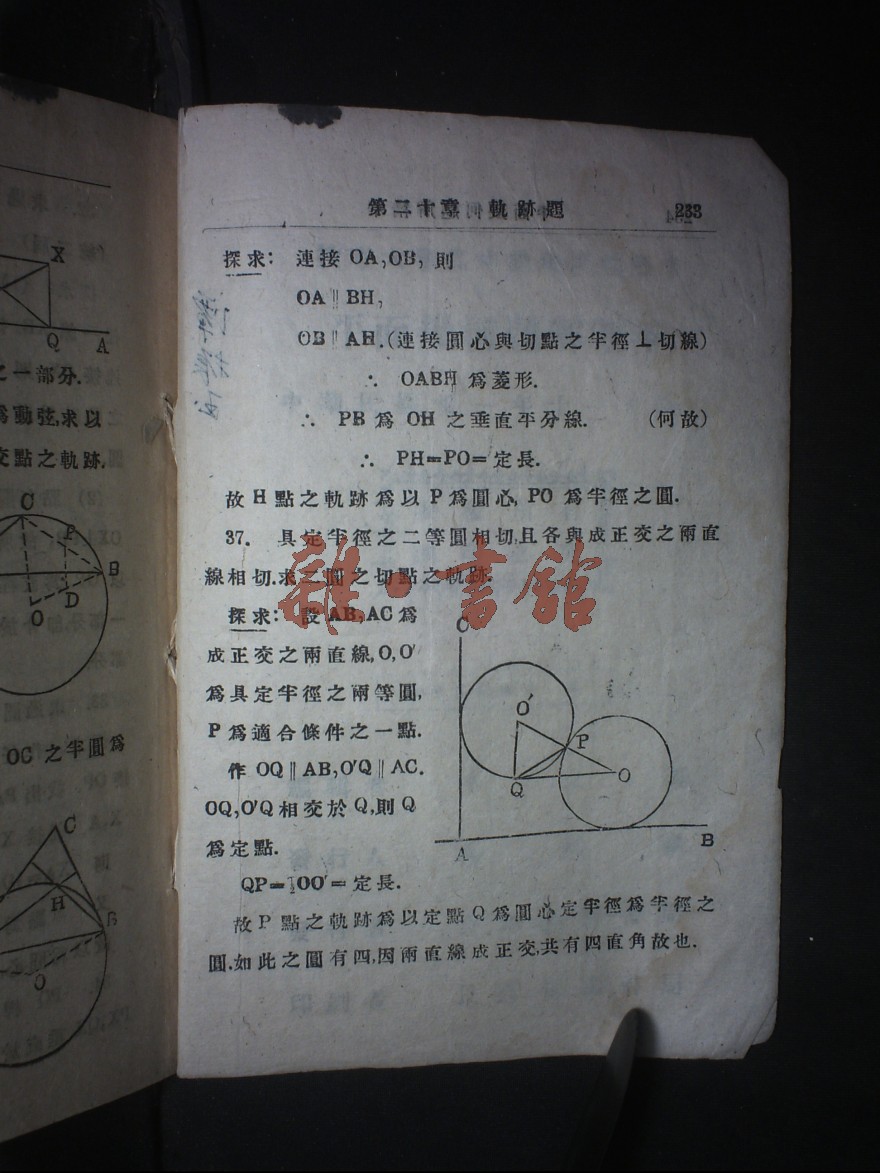 之一部分.
爲動弦,求以
交點之軌跡.
OC 之半圓爲
X
Q A
C
P
B
D
O
C
H
B
O
第二十章 軌跡題 233
探求: 連接 OA,OB, 則
OA ∥ BH,
OB ∥ AH.(連接圓心與切點之半徑⊥切線)
∴ OABH 爲菱形.
∴ PB 爲 OH 之垂直平分線. (何故)
∴ PH=PO=定長.
故 H 點之軌跡爲以 P 爲圓心, PO 爲半徑之圓.
37. 具定半徑之二等圓相切,且各與成正交之兩直
線相切.求二圓之切點之軌跡.
雜·書館
探求: 設 AB,AC 爲
成正交之兩直線,O,O′
爲具定半徑之兩等圓,
P 爲適合條件之一點.
作 OQ ∥ AB,O′Q ∥ AC.
OQ,O′Q 相交於 Q,則 Q
爲定點.
QP=½OO′=定長.
故 P 點之軌跡爲以定點 Q 爲圓心定半徑爲半徑之
圓.如此之圓有四,因兩直線成正交,共有四直角故也.
C
O′
P
Q
O
A
B